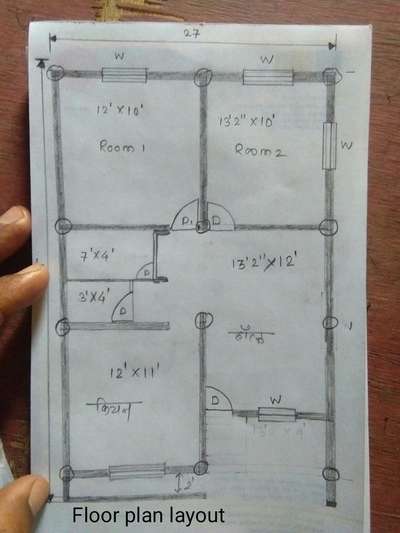 27
W
W
12'×10'
13'2"×10'
Room 1
Room 2
W
D1
D
7'×4'
D
13'2"×12'
3'×4'
D
हॉल
12'×11'
किचन
D
W
2'
Floor plan layout